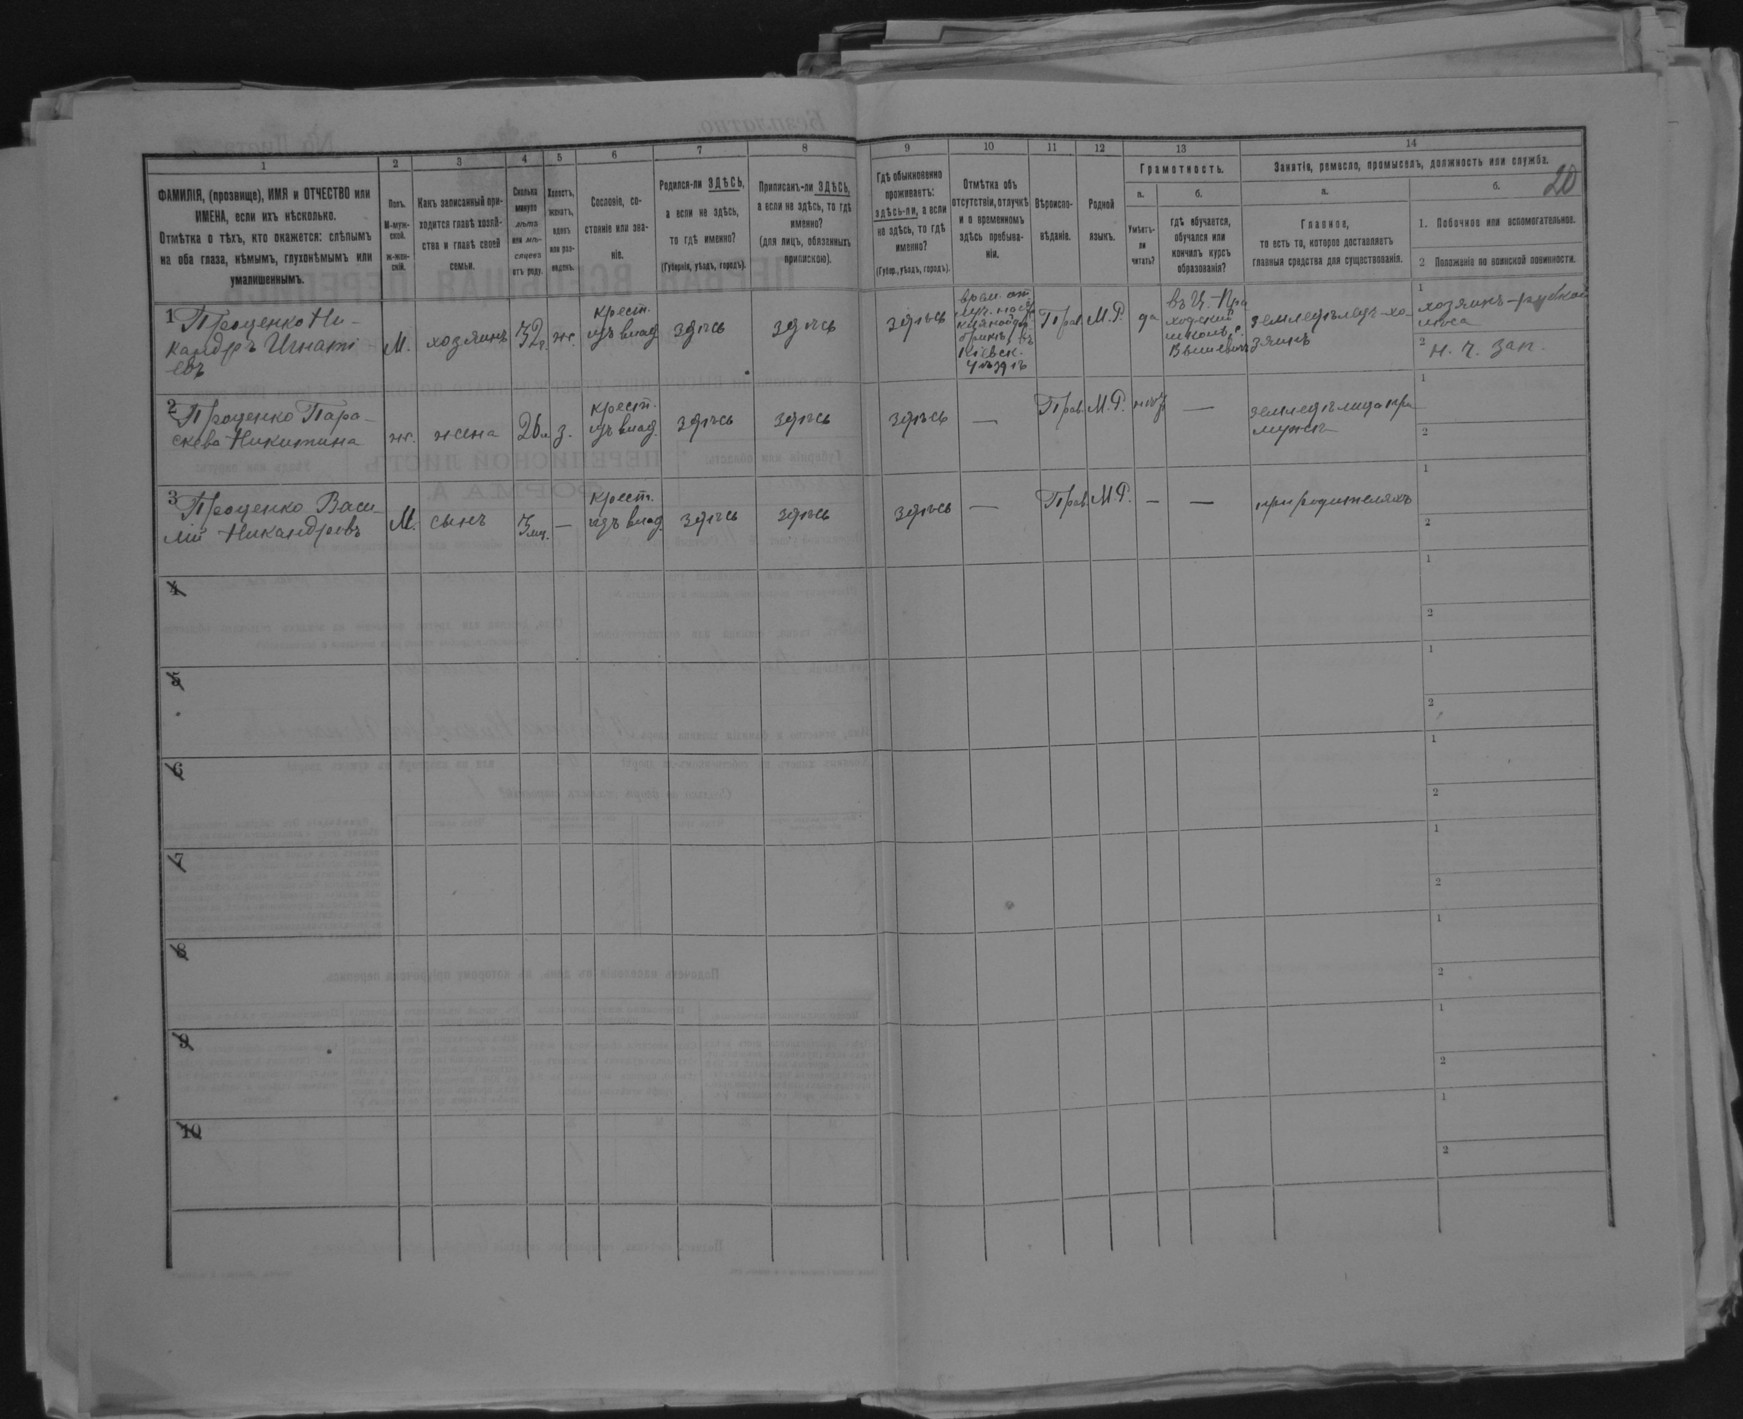 1 2 3 4 5 6 7 8 9 10 11 12 13 14
20
ФАМИЛІЯ, (прозвище), ИМЯ и ОТЧЕСТВО или
ИМЕНА, если ихъ нѣсколько.
Отмѣтка о тѣхъ, кто окажется: слѣпымъ
на оба глаза, нѣмымъ, глухонѣмымъ или
умалишеннымъ.
Полъ.
М-муж-
ской.
ж-жен-
скій.
Какъ записанный при-
ходится главѣ хозяй-
ства и главѣ своей
семьи.
Сколько
минуло
лѣтъ
или мѣ-
сяцевъ
отъ роду.
Холостъ,
женатъ,
вдовъ
или раз-
веденъ.
Сословіе, со-
стояніе или зва-
ніе.
Родился-ли ЗДѢСЬ,
а если не здѣсь,
то гдѣ именно?
(Губернія, уѣздъ, городъ).
Приписанъ-ли ЗДѢСЬ,
а если не здѣсь, то гдѣ
именно?
(для лицъ, обязанныхъ
припискою).
Гдѣ обыкновенно
проживаетъ:
здѣсь-ли, а если
не здѣсь, то гдѣ
именно?
(Губер., уѣздъ, городъ).
Отмѣтка объ
отсутствіи, отлучкѣ
и о временномъ
здѣсь пребыва-
ніи.
Вѣроиспо-
вѣданіе.
Родной
языкъ.
Грамотность.
а.
Умѣетъ-
ли
читать?
б.
гдѣ обучается,
обучался или
кончилъ курсъ
образованія?
Занятія, ремесло, промыселъ, должность или служба.
а.
Главное,
то есть то, которое доставляетъ
главныя средства для существованія.
б.
1. Побочное или вспомогательное.
2 Положеніе по воинской повинности.
1 Проценко Ни-
кандръ Игнатi-
евъ
М.
хозяинъ
32 г.
ж.
крест.
изъ влад.
здѣсь
здѣсь
здѣсь
врем. от
Кіевск.
уѣздѣ
Прав.
М.Р.
да
въ Ц.-При
ходской
школѣ, с.
земледѣлецъ-хо-
зяинъ
1
хозяинъ-рубкой
лѣса
2
н. ч. зап.
2 Проценко Пара-
скева Никитина
ж.
жена
26 л.
з.
крест.
изъ влад.
здѣсь
здѣсь
здѣсь
—
Прав.
М.Р.
нѣтъ
—
земледѣлица при
мужѣ
1
2
3 Проценко Васи-
лій Никандровъ
М.
сынъ
3 мц.
—
крест.
изъ влад.
здѣсь
здѣсь
здѣсь
—
Прав.
М.Р.
—
—
при родителяхъ
1
2
4
1
2
5
1
2
6
1
2
7
1
2
8
1
2
9
1
2
10
1
2